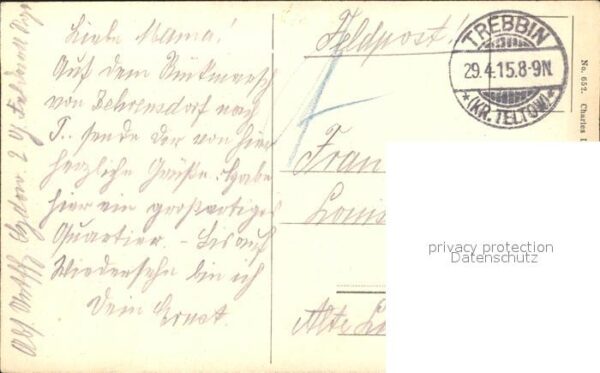 Liebe Mama!
Auf dem Rückmarsch
von Behrensdorf nach
T.. sende Dir von hier
herzliche Grüße. Habe
hier ein großartiges
Quartier. – Bis auf
Wiedersehn bin ich
Dein Ernst.
Abs.
Feldpost!
TREBBIN
29.4.15.8-9N.
*(KR. TELTOW)*
Frau
Alte
No. 652. Charles
privacy protection
Datenschutz